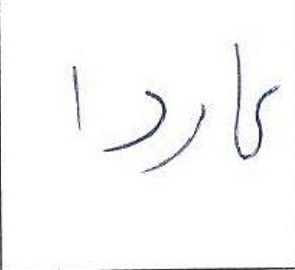 لاردا